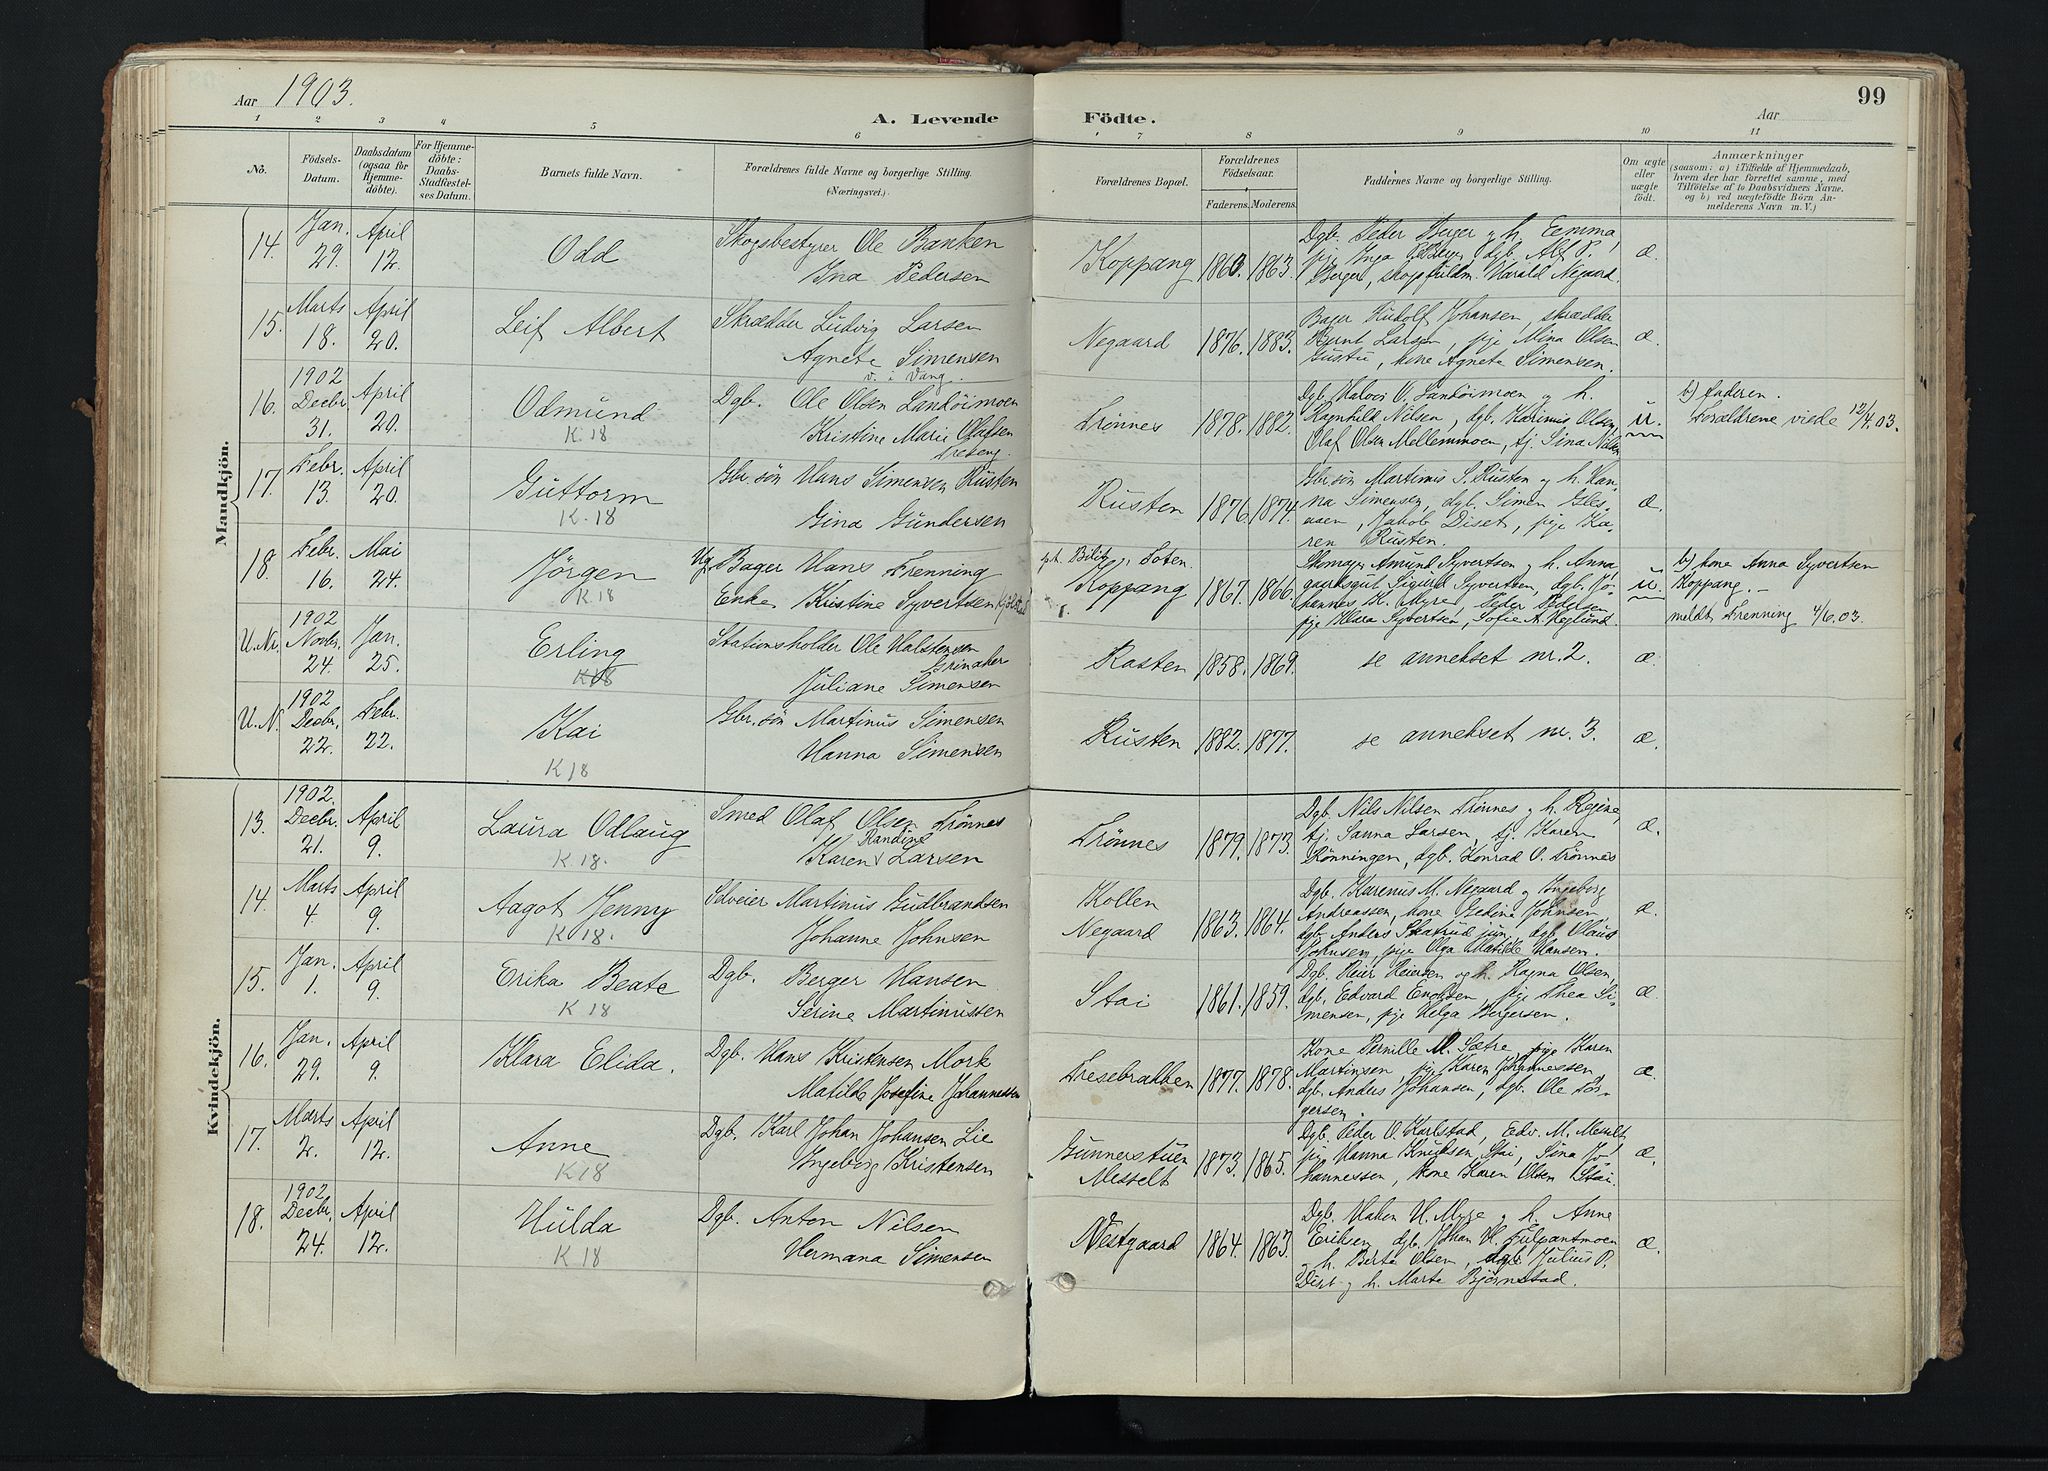 Aar 1903.
A. Levende Födte.
Aar
99
1 2 3 4 5 6 7 8 9 10 11
No.
Födsels-Datum.
Daabsdatum (ogsaa for Hjemmedöbte).
For Hjemmedöbte: Daabs-Stadfæstelses Datum.
Barnets fulde Navn.
Forældrenes fulde Navne og borgerlige Stilling. (Næringsvei.)
Forældrenes Bopæl.
Forældrenes Födselsaar.
Faderens. Moderens.
Faddernes Navne og borgerlige Stilling.
Om ægte eller uægte födt.
Anmærkninger
(saasom: a) i Tilfælde af Hjemmedaab, hvem der har forrettet samme, med Tilföielse af to Daabsvidners Navne. og b) ved uægtefödte Börn Anmelderens Navn m. V.)
Mandkjön.
14. Jan. 29. April 12. Odd
Skogsbestyrer Ole Banken
Ina Pedersen
Koppang 1863. 1863.
Dgb. Peder Berger og h. Eemma,
pige Inga Berger, dgb. Alf P.
Berger, skogfuldm. Harald Negaard.
æ.
15. Marts 18. April 20. Leif Albert
Skrædder Ludvig Larsen
Agnete Simensen
Negaard 1876. 1883.
Bager Rudolf Johansen, skrædder
Bernt Larsen, pige Mina Olsen
Gustu, kone Agnete Simensen.
æ.
16. 1902 Decbr. 31. April 20. Odmund
K. 18
v. i Vang.
Dgb. Ole Olsen Landöimoen
Kristine Marie Olafsen
Treberg.
Trønnes 1878. 1882.
Dgb. Halvor O. Landöimoen og h.
Ragnhild Nilsen, dgb. Karinius Olsen,
Olaf Olsen Mellemmoen, tj. Sina Nilsen
u.
b) faderen.
Forældrene viede 12/4.03.
17. Febr. 13. April 20. Guttorm
K. 18
Gbr. søn Hans Simensen Rusten
Gina Gundersen
Rusten 1876. 1874.
Gbr. søn Martinus S. Rusten og h. Han-
na Simensen, dgb. Simen
Jakob Diset, pige Ka-
ren Rusten.
æ.
18. Febr. 16. Mai 24. Jørgen
K 18
Ug. Bager Hans Frenning
Enke Kristine Syvertsen
Toten.
Koppang 1867. 1866.
Skomager Amund Syvertsen og h. Anna,
gaardsgut Sigurd Syvertsen, dgb. Jo-
hannes K. Myre, Peder Pedersen,
pige Klara Syvertsen, Sofie A. Høglund.
u.
b) kone Anna Syvertsen
Koppang. —
meldt Frenning 4/6.03.
U. Nr. 1902 Novbr. 24. Jan. 25. Erling
K18
Stationsholder Ole Halstensen
Grinaker
Juliane Simensen
Rasten 1858. 1869. se annekset nr. 2. æ.
U. N. 1902 Decbr. 22. Febr. 22. Kai
K 18
Gbr. søn Martinus Simensen
Hanna Simensen
Rusten 1882. 1877. se annekset nr. 3. æ.
Kvindekjön.
13. 1902. Decbr. 21. April 9. Laura Odlaug
K. 18.
Smed Olaf Olsen Trønnes
Karen Randine Larsen
Trønnes 1879. 1873.
Dgb. Nils Nilsen Trønnes og h. Regine,
tj. Sanna Larsen, tj. Karen
Rønningen, dgb. Konrad O. Trønnes
æ.
14. Marts 4. April 9. Aagot Jenny
K 18.
Selveier Martinus Gudbrandsen
Johanne Johnsen
Kollen
Negaard 1863. 1864.
Dgb. Karenus M. Negaard og Ingeborg
Andreassen, kone Gedina Johnsen,
dgb. Anders Skatrud jun., dgb. Olaus
Johnsen, pige Olga Matilde Hansen.
æ.
15. Jan. 1. April 9. Erika Beate
K 18
Dgb. Berger Hansen
Serine Martinussen
Stai 1861. 1859.
Dgb. Reier Reiersen og h. Ragna Olsen,
dgb. Edvard Enoksen, pige Thea Si-
mensen, pige Helga Bergersen.
æ.
16. Jan. 29. April 9. Klara Elida.
Dgb. Hans Kristensen Mork
Matilde Josefine Johannessen
Tresebrakken 1877. 1878.
Kone Pernille M. Sætre, pige Karen
Martinsen, pige Karen Johannessen
dgb. Anders Johansen, dgb. Ole Tor-
gersen.
æ.
17. Marts 2. April 12. Anne
K18
Dgb. Karl Johan Johansen Lie
Ingeborg Kristensen
Gunnerstuen
Messelt 1873. 1865.
Dgb. Peder O. Karlstad, Edv. M. Messelt,
pige Hanna Knudsen Stai, Sina Jo-
hannessen, kone Karen Olsen Stai.
æ.
18. 1902 Decbr. 24. April 12. Hulda
K 18
Dgb. Anton Nilsen
Hermana Simensen
Vestgaard 1864. 1863.
Dgb. Haken H. Myge og h. Anne
Eriksen, dgb. Johan H. Fulpantmoen
og h. Berte Olsen, dgb. Julius P.
Diset og h. Marte Bjørnstad.
æ.